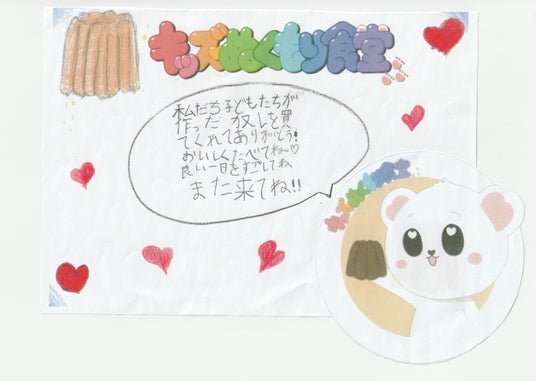 キッズぬくもり食堂
私たち子どもたちが
作ったカヌレを買
てくれてありがとう!
おいしくたべてねー♡
良い一日をすごしてね
また来てね!!